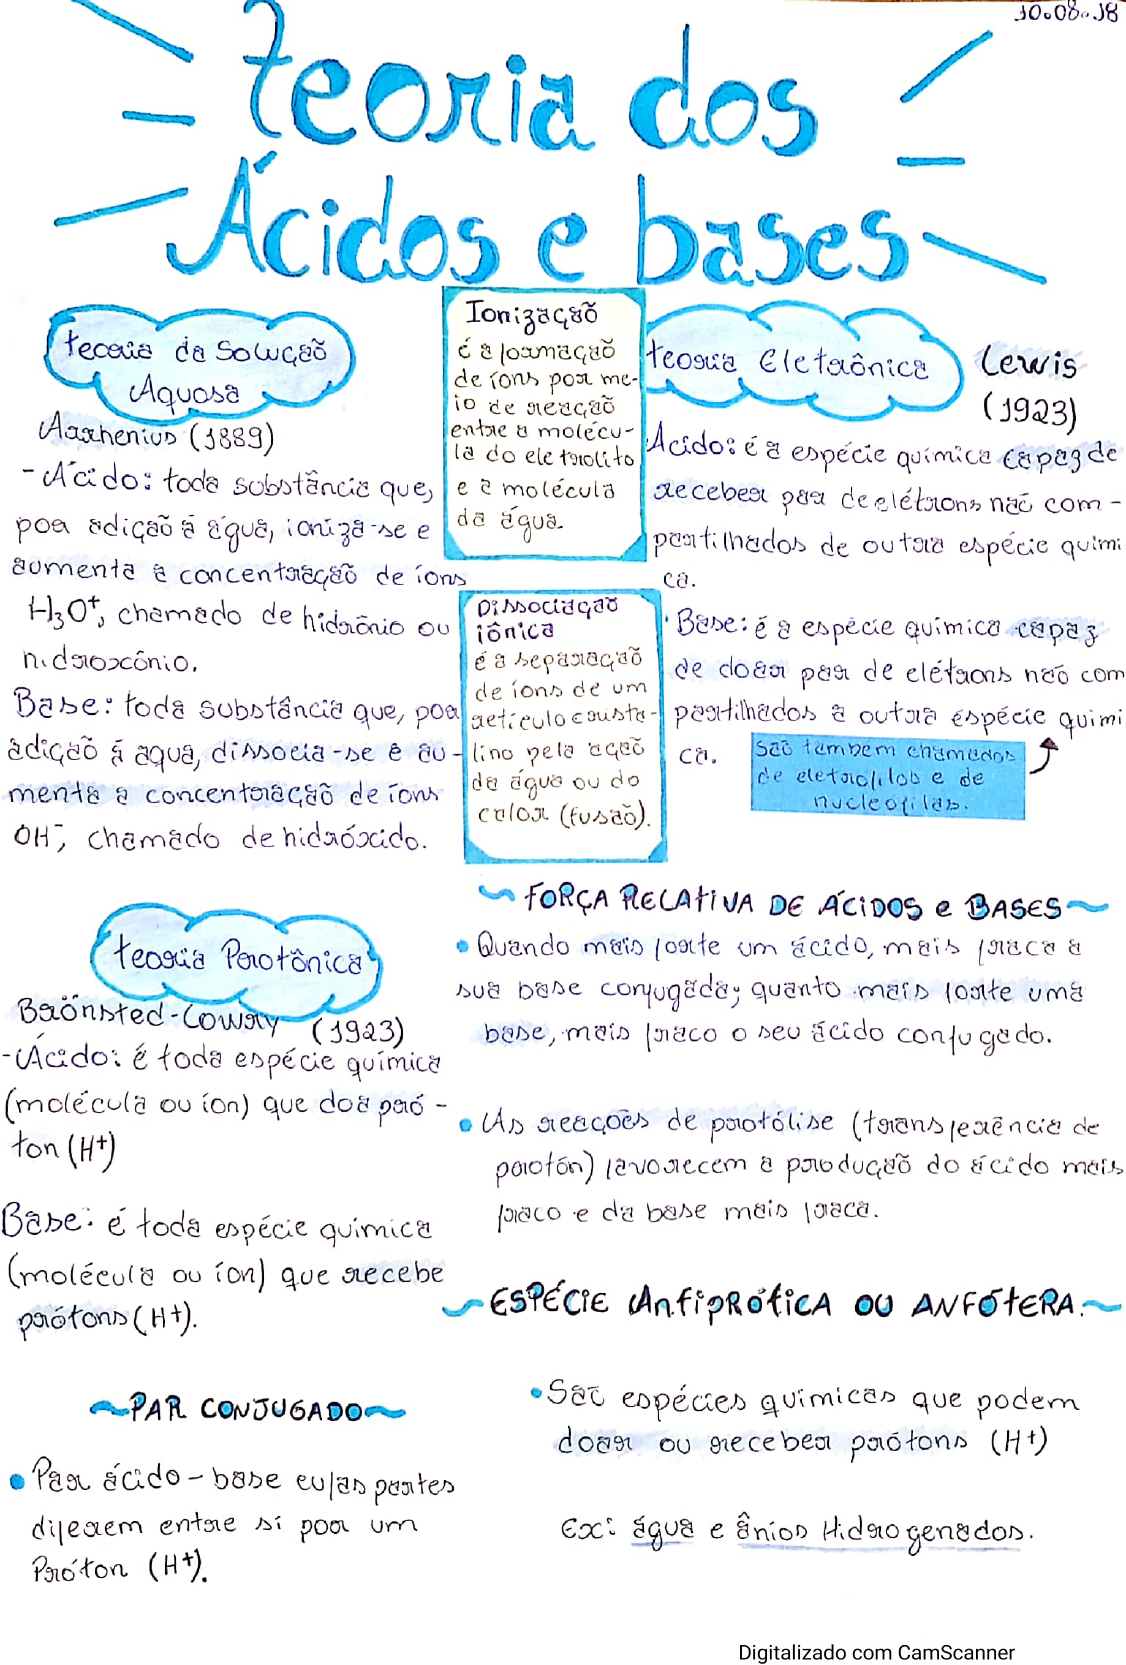 10.08.18
Teoria dos
Ácidos e bases
teoria da Solução
Aquosa
Arrhenius (1889)
-Ácido: toda substância que,
por adição á água, ioniza-se e
aumenta a concentração de íons
H₃O⁺, chamado de hidrônio ou
hidroxônio.
Base: toda substância que, por
adição á água, dissocia-se e au-
menta a concentração de íons
OH⁻, chamado de hidróxido.
Ionização
é a formação
de íons por me-
io de reação
entre a molécu-
la do eletrolito
e a molécula
da água.
Dissociação
iônica
é a separação
de íons de um
retículo crista-
lino pela ação
da água ou do
calor (fusão).
teoria Eletrônica
Lewis
(1923)
Ácido: é a espécie química capaz de
receber par de elétrons não com-
partilhados de outra espécie quími
ca.
Base: é a espécie química capaz
de doar par de elétrons não com
partilhados a outra espécie quimi
ca.
São também chamados
de eletrofilos e de
nucleofilas.
Teoria Protônica
Brönsted-Lowry (1923)
-Ácido: é toda espécie química
(molécula ou íon) que doa pró-
ton (H⁺)
Base: é toda espécie química
(molécula ou íon) que recebe
prótons (H⁺).
~PAR CONJUGADO~
Par ácido-base cujas partes
diferem entre si por um
Próton (H⁺).
~FORÇA RELATIVA DE ÁCIDOS e BASES~
Quando mais forte um ácido, mais fraca a
sua base conjugada; quanto mais forte uma
base, mais fraco o seu ácido conjugado.
As reações de protólise (transferência de
protón) favorecem a produção do ácido mais
fraco e da base mais fraca.
~ESPÉCIE AnfiPRótiCA OU ANFÓtERA.~
São espécies químicas que podem
doar ou receber prótons (H⁺)
Ex: água e ânios Hidrogenados.
Digitalizado com CamScanner